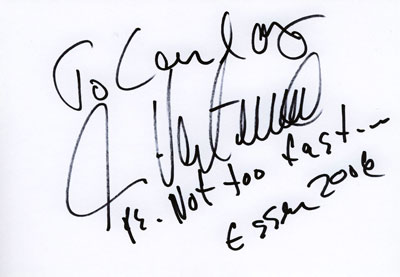 To Carlos
ps. Not too fast...
Essen 2006